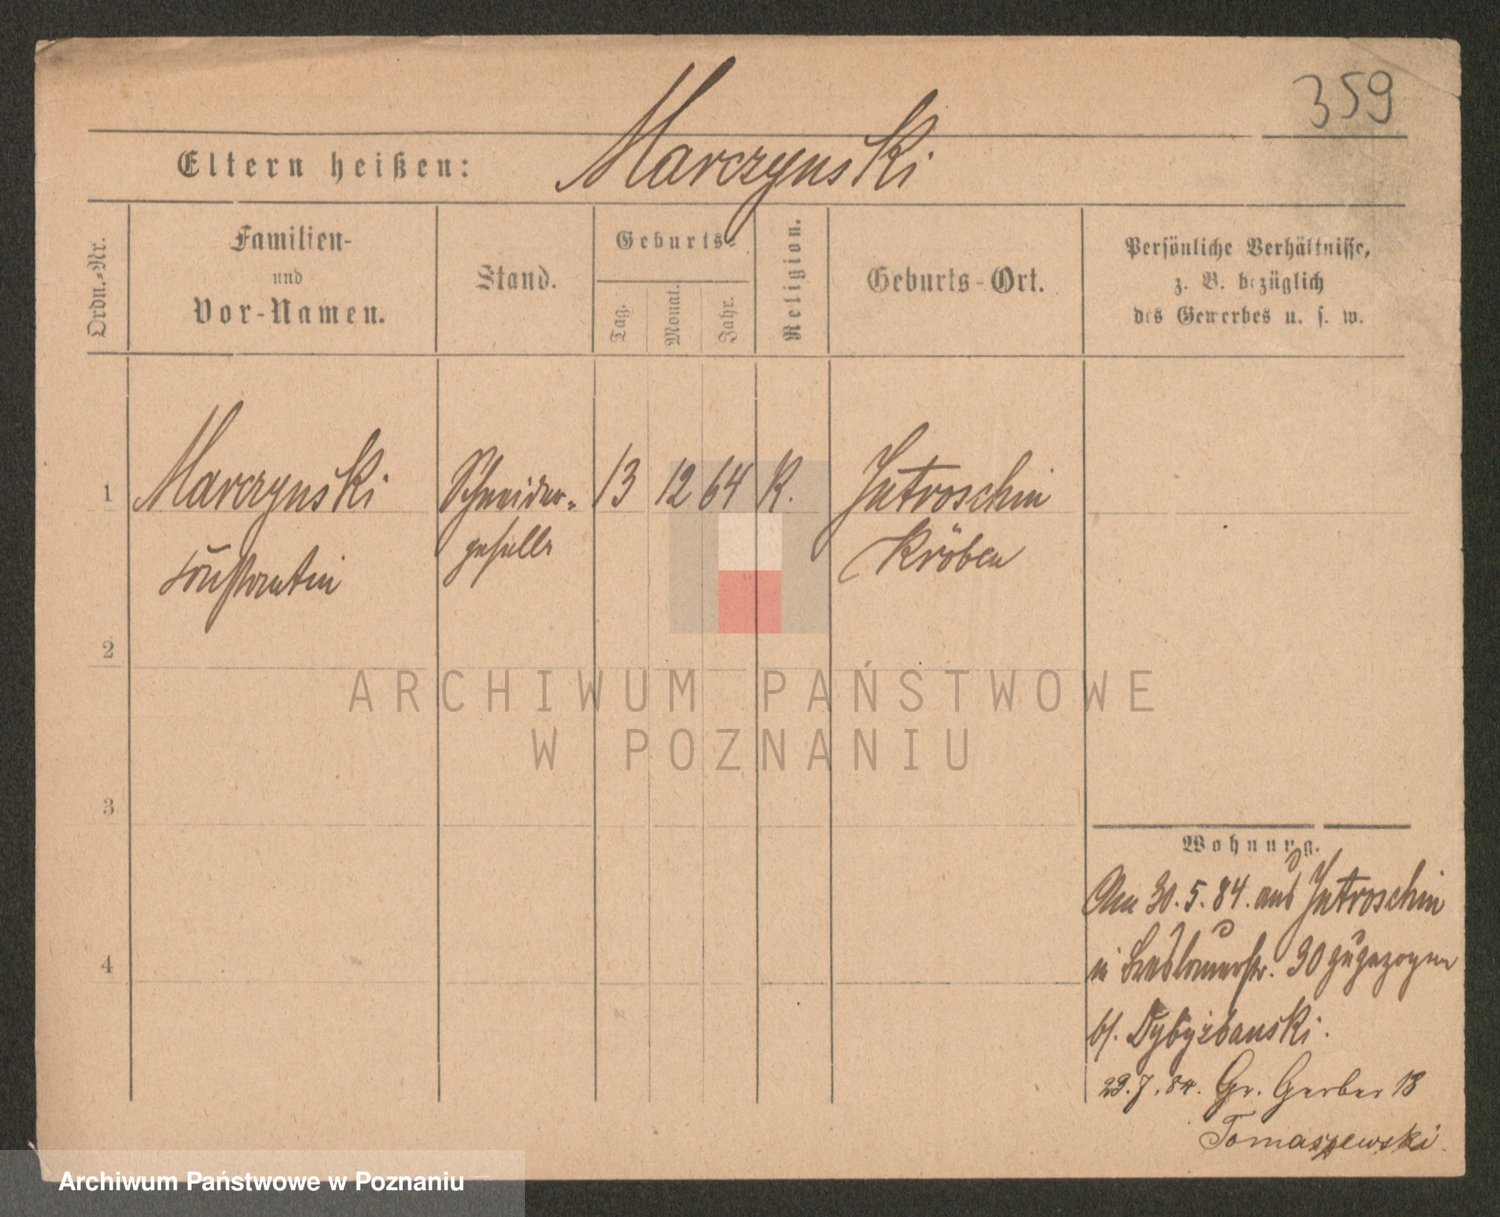 359
Eltern heißen: Marczynski
Ordn.-Nr.
Familien-
und
Vor-Namen.
Stand.
Geburts-
Tag.
Monat.
Jahr.
Religion.
Geburts-Ort.
Persönliche Verhältnisse,
z. B. bezüglich
des Gewerbes u. s. w.
1 Marczynski Schneider- 13 12 64 K. Jutroschin
Constantin geselle Kröben
2
3
4
Wohnung.
Am 30.5.84. aus Jutroschin
in 30 zugezogen
b/.
29.7.84. Gr. Gerber 13
Tomaszewski.
ARCHIWUM PAŃSTWOWE
W POZNANIU
Archiwum Państwowe w Poznaniu